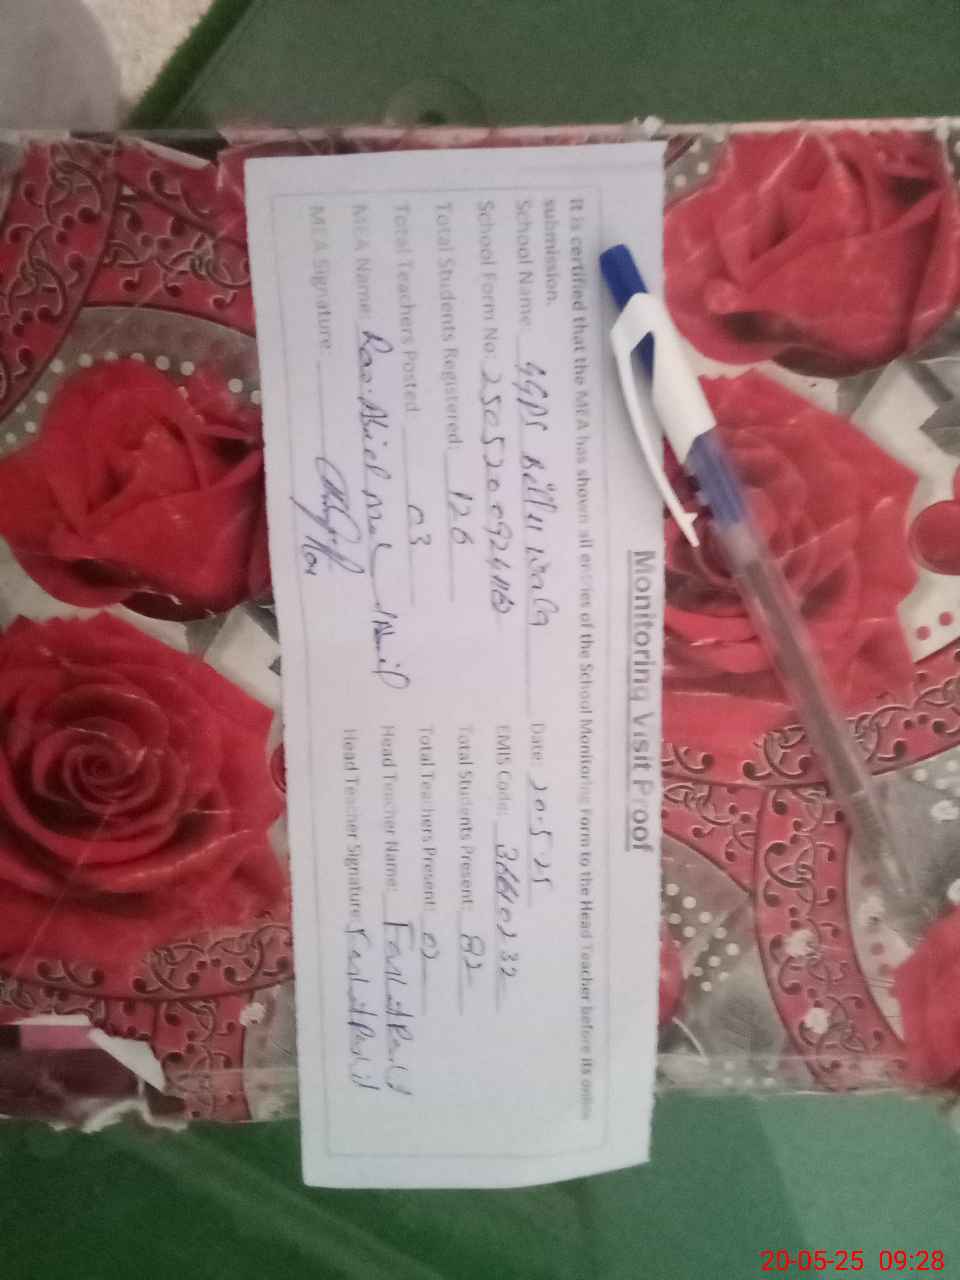 Monitoring Visit Proof
It is certified that the MEA has shown all entries of the School Monitoring Form to the Head Teacher before its online
submission.
School Name: GGPS Billu Wala Date: 20-5-25
School Form No: EMIS Code:
Total Students Registered: 126 Total Students Present: 82
Total Teachers Posted: 03 Total Teachers Present: 02
MEA Name: Head Teacher Name:
MEA Signature: Head Teacher Signature:
20-05-25 09:28